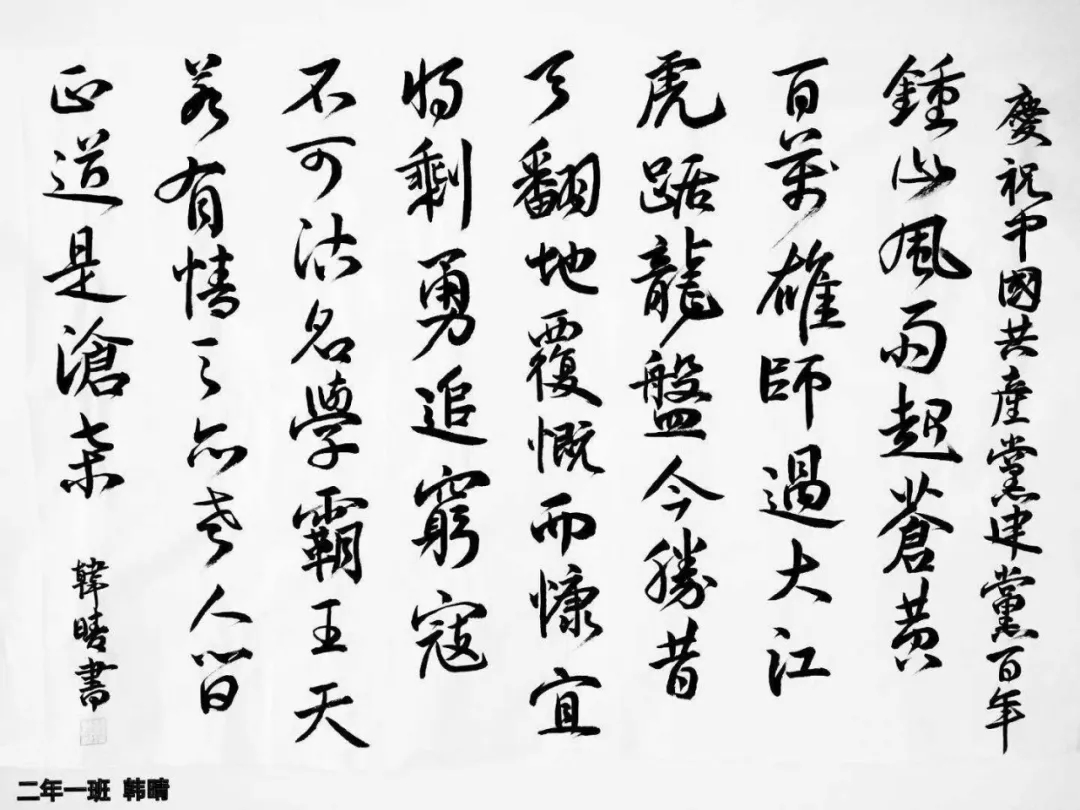 慶祝中國共產黨建黨百年
鍾山風雨起蒼黃
百萬雄師過大江
虎踞龍盤今勝昔
天翻地覆慨而慷宜
將剩勇追窮寇
不可沽名學霸王天
若有情天亦老人間
正道是滄桑
韓晴書
二年一班 韩晴